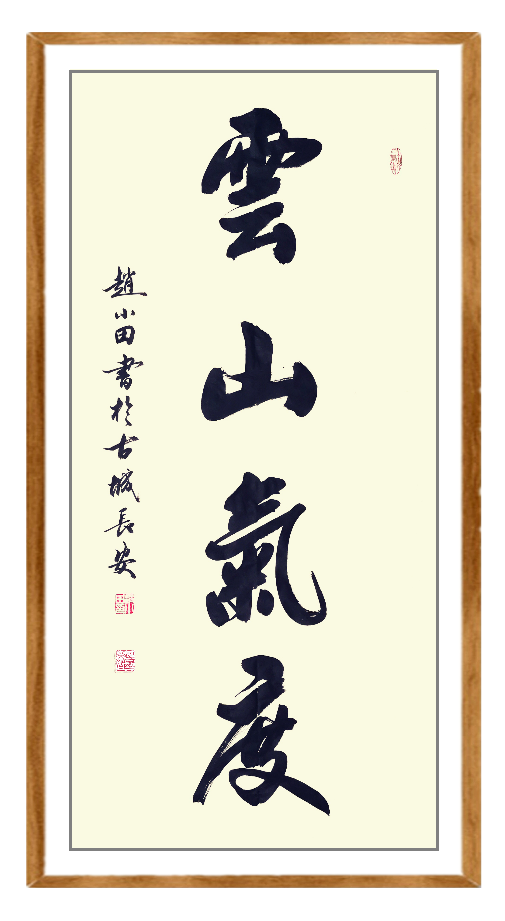 雲山氣度
趙小田書於古城長安